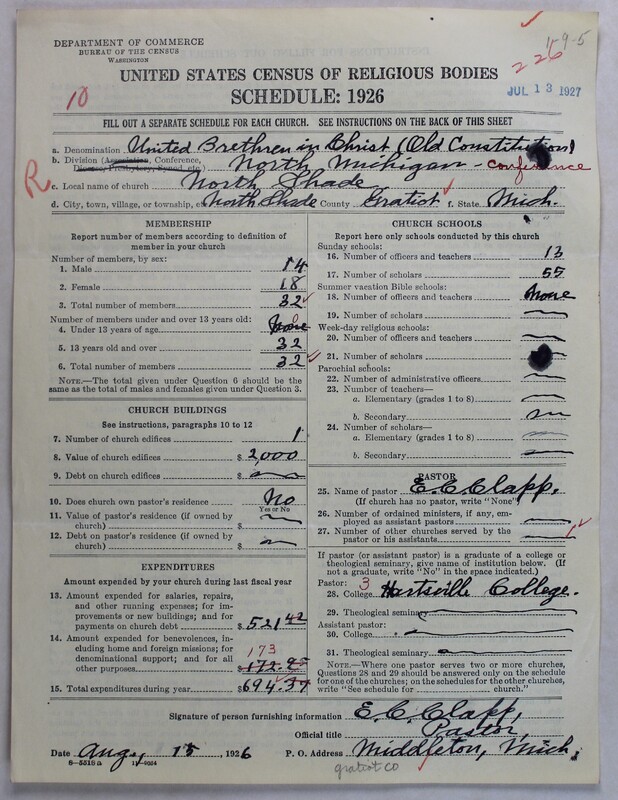 DEPARTMENT OF COMMERCE
BUREAU OF THE CENSUS
WASHINGTON
226
JUL 13 1927
UNITED STATES CENSUS OF RELIGIOUS BODIES
SCHEDULE: 1926
10
FILL OUT A SEPARATE SCHEDULE FOR EACH CHURCH. SEE INSTRUCTIONS ON THE BACK OF THIS SHEET
a. Denomination United Brethren in Christ (Old Constitution)
b. Division (Association, Conference, Diocese, Presbytery, Synod, etc.) North Michigan - Conference
R
c. Local name of church North Shade
d. City, town, village, or township, etc. North Shade County Gratiot f. State Mich.
MEMBERSHIP
Report number of members according to definition of member in your church
Number of members, by sex:
1. Male 14
2. Female 18
3. Total number of members 32
Number of members under and over 13 years old:
4. Under 13 years of age None 0
5. 13 years old and over 32
6. Total number of members 32
NOTE.—The total given under Question 6 should be the same as the total of males and females given under Question 3.
CHURCH BUILDINGS
See instructions, paragraphs 10 to 12
7. Number of church edifices 1
8. Value of church edifices $ 2,000
9. Debt on church edifices $
10. Does church own pastor's residence No
Yes or No
11. Value of pastor's residence (if owned by church) $
12. Debt on pastor's residence (if owned by church) $
EXPENDITURES
Amount expended by your church during last fiscal year
13. Amount expended for salaries, repairs, and other running expenses; for improvements or new buildings; and for payments on church debt $ 521.42
14. Amount expended for benevolences, including home and foreign missions; for denominational support; and for all other purposes 173 $ 172.95
15. Total expenditures during year $ 694.37
CHURCH SCHOOLS
Report here only schools conducted by this church
Sunday schools:
16. Number of officers and teachers 13
17. Number of scholars 55
Summer vacation Bible schools:
18. Number of officers and teachers None
19. Number of scholars
Week-day religious schools:
20. Number of officers and teachers
21. Number of scholars
Parochial schools:
22. Number of administrative officers
23. Number of teachers—
a. Elementary (grades 1 to 8)
b. Secondary
24. Number of scholars—
a. Elementary (grades 1 to 8)
b. Secondary
PASTOR
25. Name of pastor E. C. Clapp,
(If church has no pastor, write "None")
26. Number of ordained ministers, if any, employed as assistant pastors
27. Number of other churches served by the pastor or his assistants
If pastor (or assistant pastor) is a graduate of a college or theological seminary, give name of institution below. (If not a graduate, write "No" in the space indicated.)
Pastor: 3
28. College Hartsville College.
29. Theological seminary
Assistant pastor:
30. College
31. Theological seminary
NOTE.—Where one pastor serves two or more churches, Questions 28 and 29 should be answered only on the schedule for one of the churches; on the schedules for the other churches, write "See schedule for church."
Signature of person furnishing information E. C. Clapp,
Official title Pastor,
Date Aug, 15, 1926 P. O. Address Middleton, Mich.
gratiot co